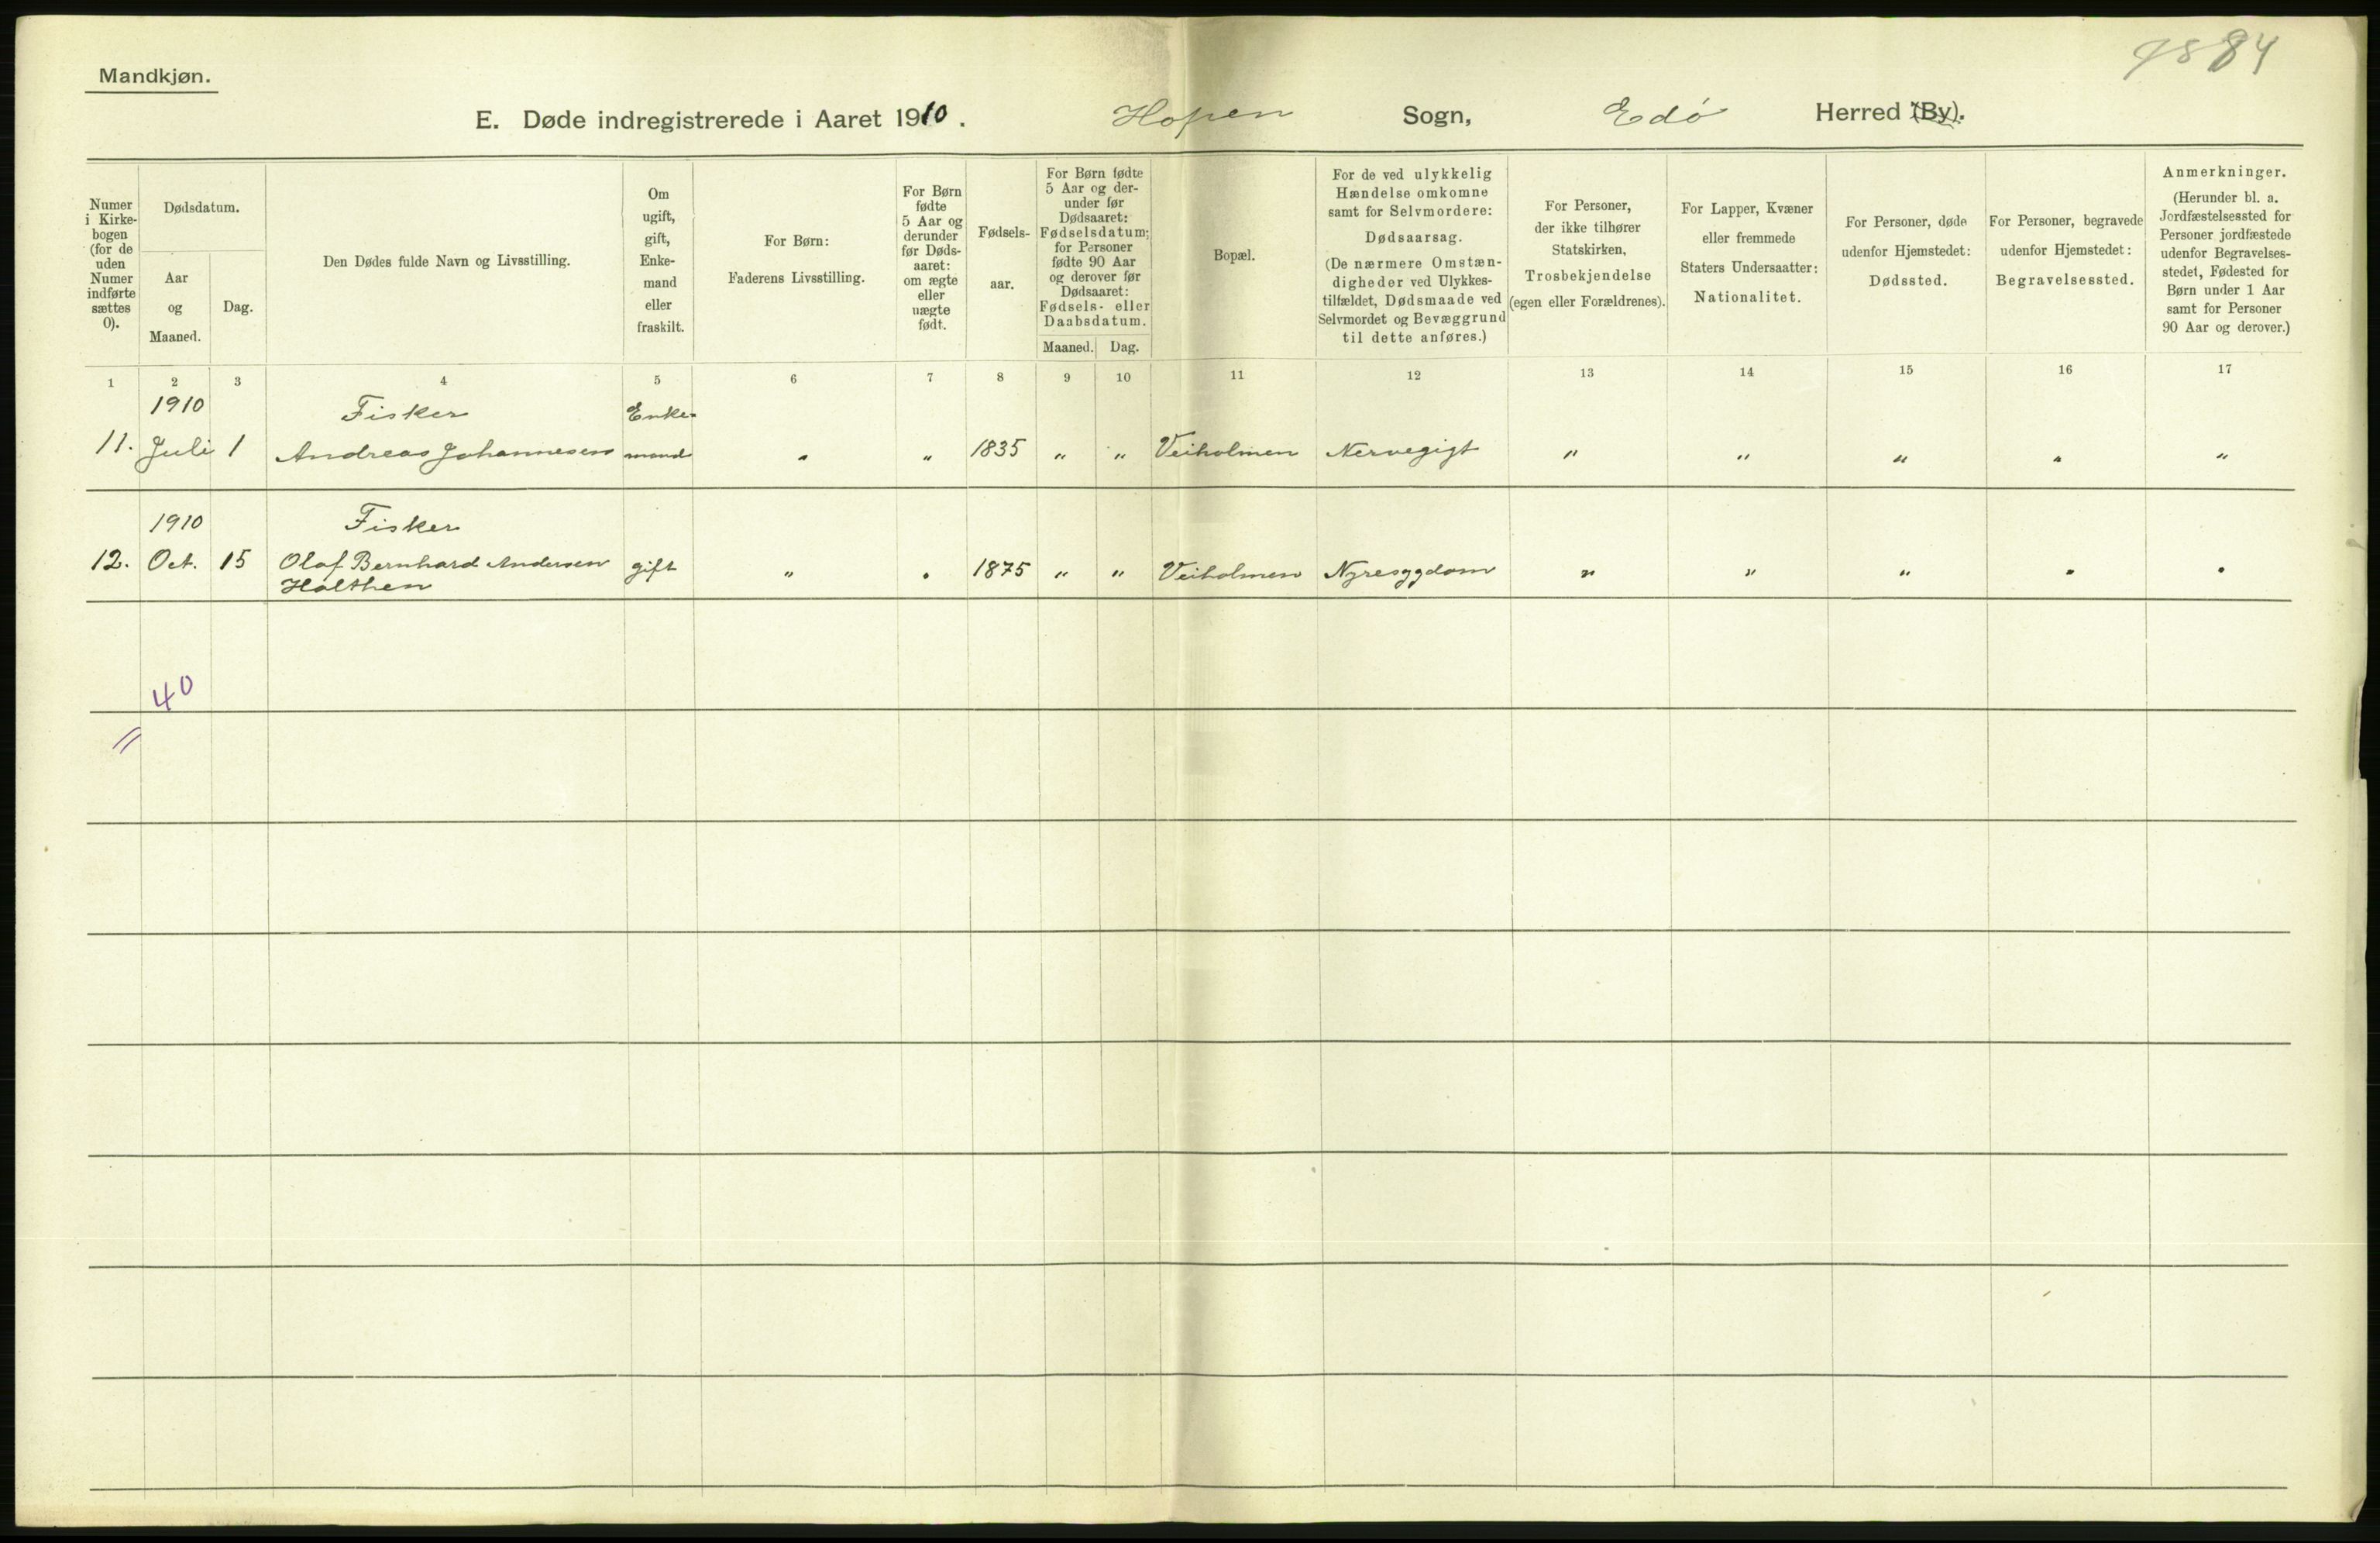 9884
Mandkjøn.
E. Døde indregistrerede i Aaret 1910. Hopen Sogn, Edó Herred (By).
Numer
i Kirke-
bogen
(for de
uden
Numer
indførte
sættes
0).
Dødsdatum.
Aar
og
Maaned.
Dag.
Den Dødes fulde Navn og Livsstilling.
Om
ugift,
gift,
Enke-
mand
eller
fraskilt.
For Børn:
Faderens Livsstilling.
For Børn
fødte
5 Aar og
derunder
før Døds-
aaret:
om ægte
eller
uægte
født.
Fødsels-
aar.
For Børn fødte
5 Aar og der-
under før
Dødsaaret:
Fødselsdatum;
for Personer
fødte 90 Aar
og derover før
Dødsaaret:
Fødsels- eller
Daabsdatum.
Maaned. Dag.
Bopæl.
For de ved ulykkelig
Hændelse omkomne
samt for Selvmordere:
Dødsaarsag.
(De nærmere Omstæn-
digheder ved Ulykkes-
tilfældet, Dødsmaade ved
Selvmordet og Bevæggrund
til dette anføres.)
For Personer,
der ikke tilhører
Statskirken,
Trosbekjendelse
(egen eller Forældrenes).
For Lapper, Kvæner
eller fremmede
Staters Undersaatter:
Nationalitet.
For Personer, døde
udenfor Hjemstedet:
Dødssted.
For Personer, begravede
udenfor Hjemstedet:
Begravelsessted.
Anmerkninger.
(Herunder bl. a.
Jordfæstelsessted for
Personer jordfæstede
udenfor Begravelses-
stedet, Fødested for
Børn under 1 Aar
samt for Personer
90 Aar og derover.)
1 2 3 4 5 6 7 8 9 10 11 12 13 14 15 16 17
1910 Fisker Enke-
11. Juli 1 Andreas Johannesen mand " " 1835 " " Veiholmen Nervegigt " " " " "
1910 Fisker
12. Oct. 15 Olaf Bernhard Andersen gift " " 1875 " " Veiholmen Nyresygdom " " " " "
Holthen
40